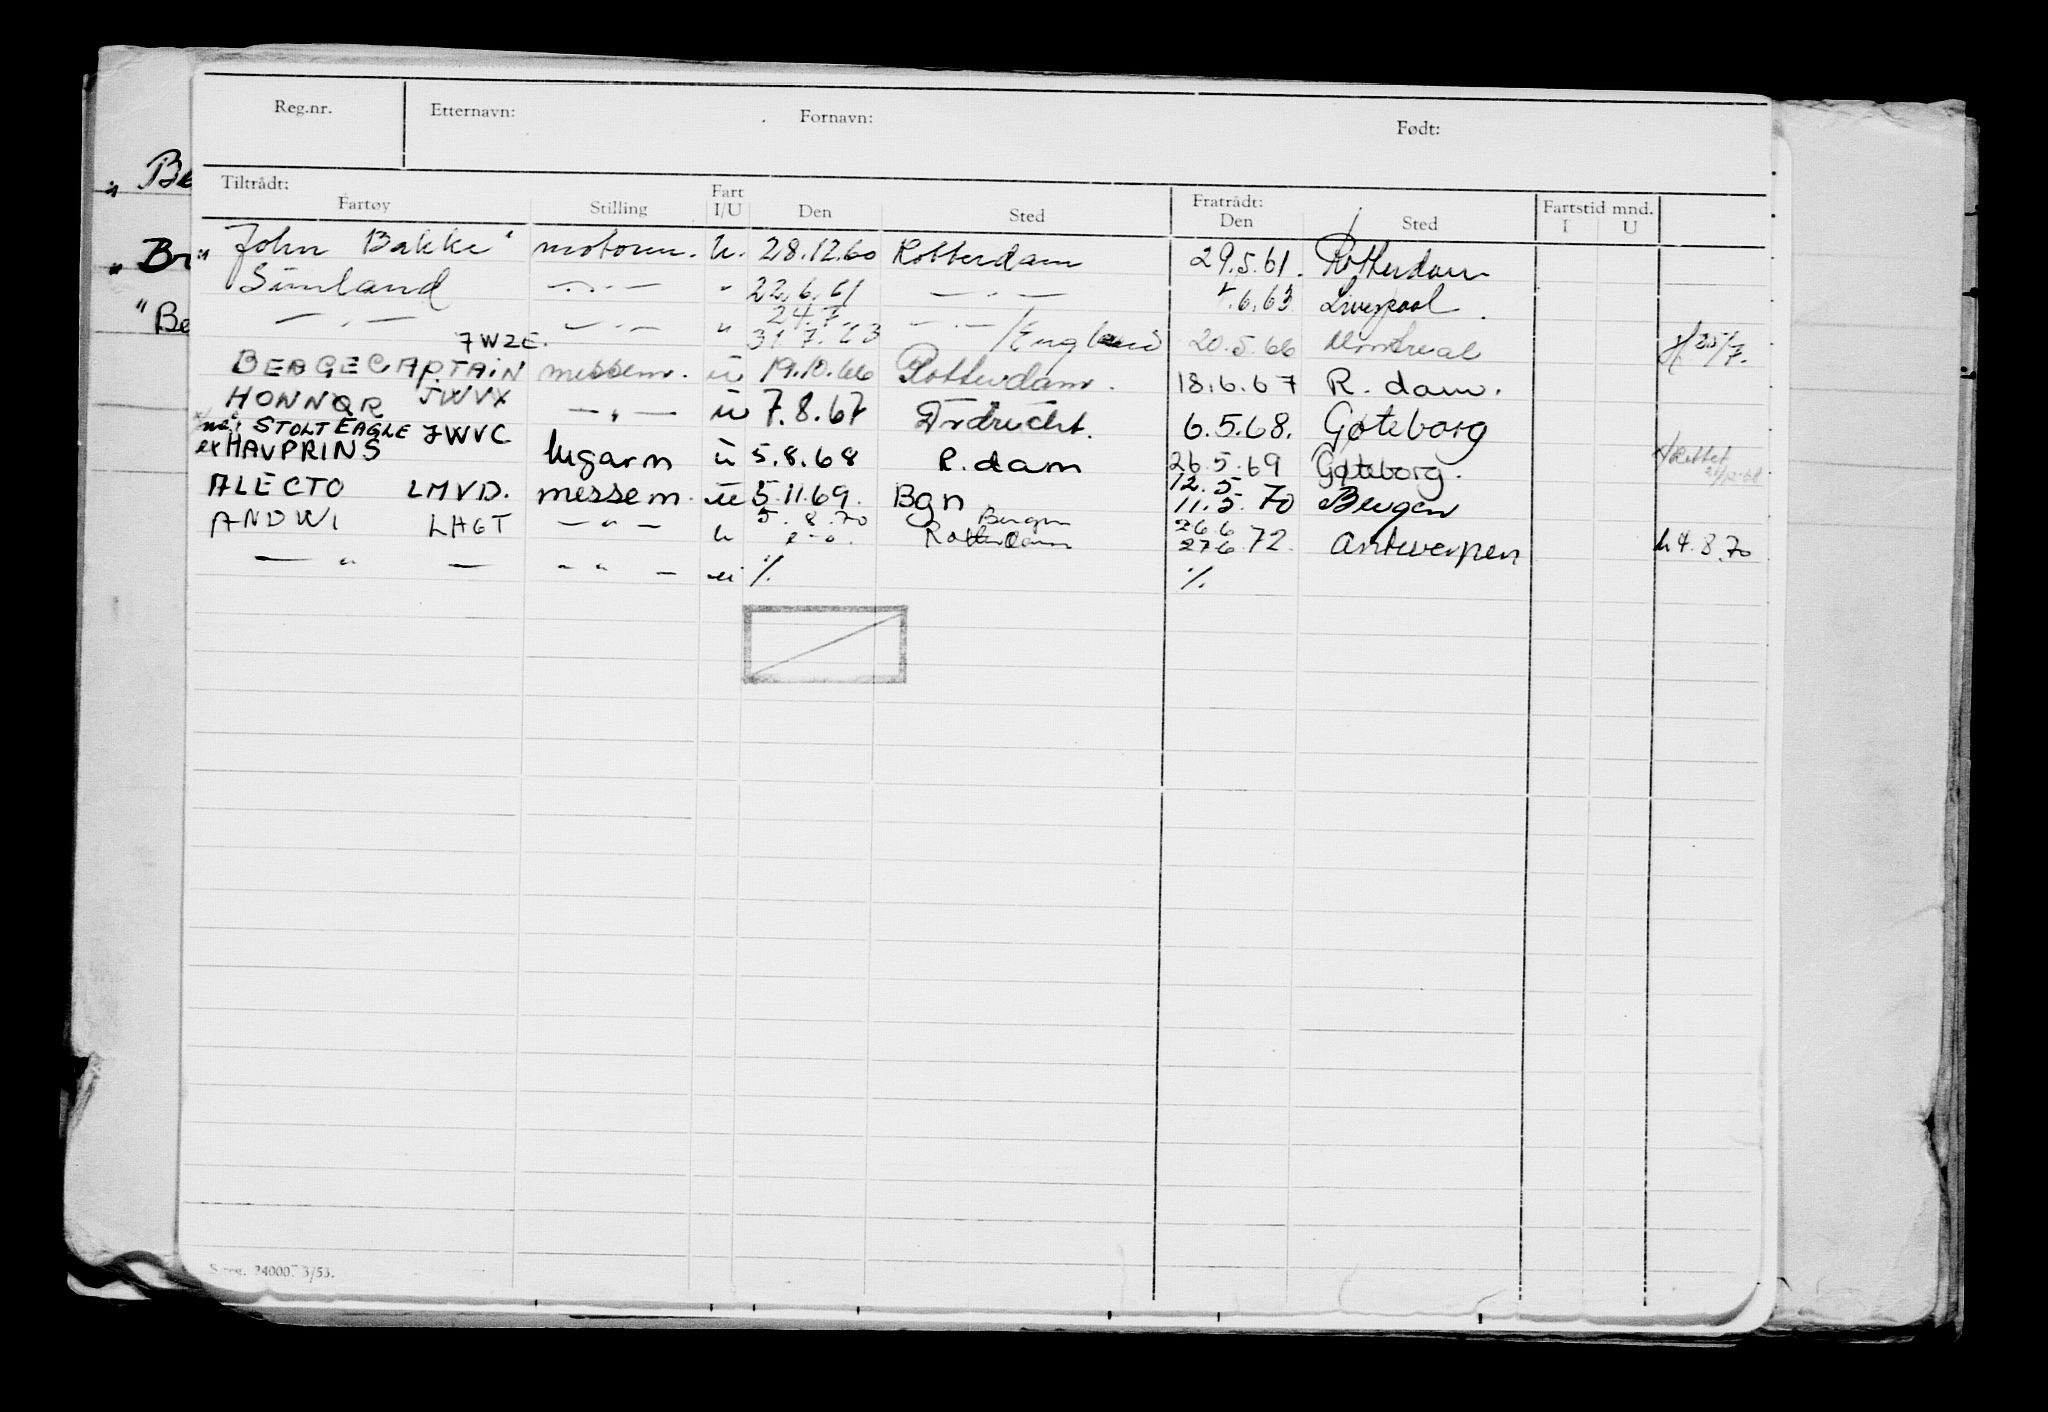 Reg.nr. Etternavn: Fornavn: Født:
Tiltrådt: Fartøy Stilling Fart I/U Den Sted Fratrådt: Den Sted Fartstid mnd. I U
" Be
" Br
" Be
"John Bakke" motorm. u. 28.12.60 Rotterdam 29.5.61. Rotterdam
Simland — " — " 22.6.61 — " — .6.63 Liverpool
— " — — " — " 24.7. 31.7.63 — " — /England 20.5.66 Montreal 25/7.
JWZE.
BERGECAPTAIN messem. u 19.10.66 Rotterdam. 18.6.67 R.dam.
HONNØR JWVX — " — u 7.8.67 Dordrecht. 6.5.68. Gøteborg
nå: STOLT EAGLE JWVC
ex HAVPRINS lugarm u 5.8.68 R.dam 26.5.69 Gøteborg. Rettet
ALECTO LMVD. messem. u 5.11.69. Bgn 12.5 11.5.70 Bergen
ANDWI LHGT — " — u 5.8.70 Bergen Rotterdam 26.6 27.6.72. Antwerpen 4.8.70
— " — — " — u % %
S-reg. 24000. 3/53.